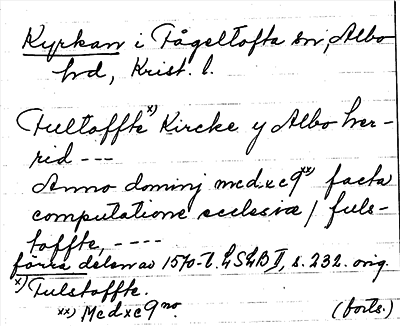 Kyrkan i Fågeltofta sn, Albo
hd, Krist. l.
Fultoffte x) Kircke y Albo her-
rid ---
Anno dominj mcdxc9 xx) facta
computatione ecclesiæ / fuls-
toffte, ----
förra delen av 1570-t. LSLB II, s. 232. orig.
x) Fulstoffte.
xx) Mcdxc9no.
(forts.)